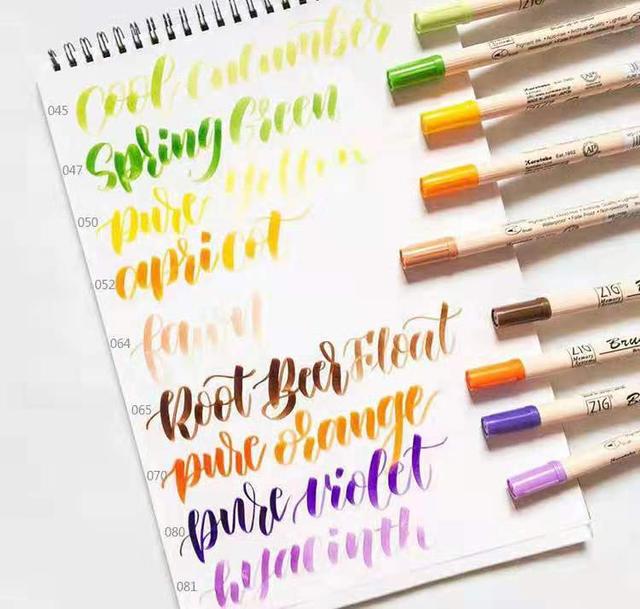 045 Cool cucumber
047 Spring Green
050 pure yellow
052 apricot
064 fawn
065 Root Beer Float
070 pure orange
080 pure violet
081 hyacinth
ZIG
Kuretake Est. 1902 AP
ZIG Memory System
ZIG